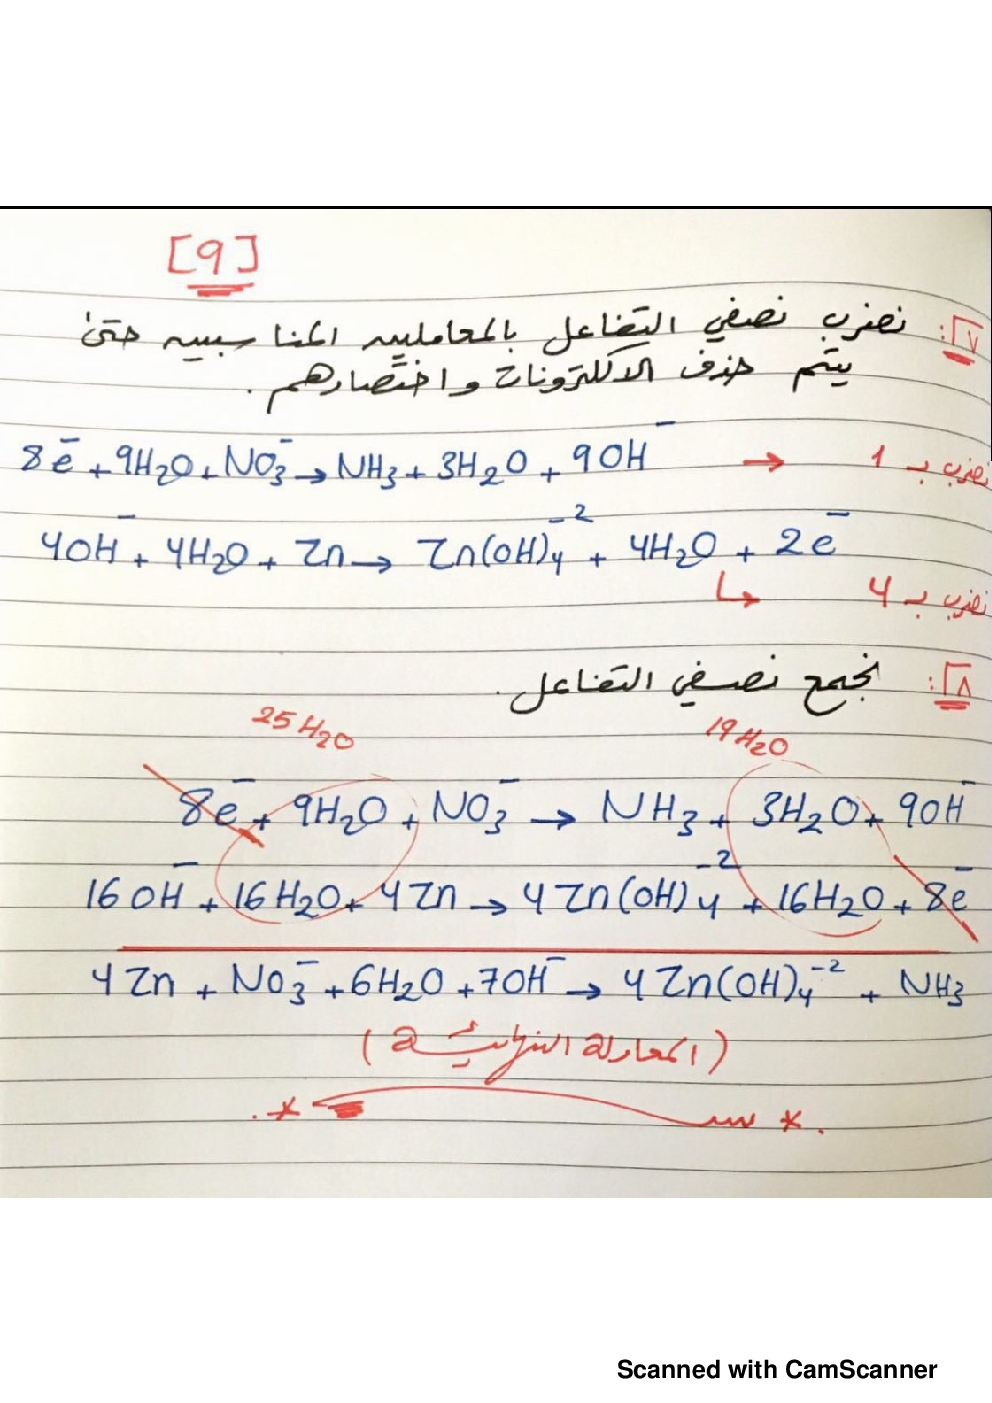 [9]
٧: نضرب نصفي التفاعل بالمعاملين المناسبين حتى
يتم حذف الالكترونات واختصارهم.
8e⁻ + 9H₂O + NO₃⁻ → NH₃ + 3H₂O + 9OH⁻ → نضرب بـ 1
4OH⁻ + 4H₂O + Zn → Zn(OH)₄⁻² + 4H₂O + 2e⁻
↳ نضرب بـ 4
٨: نجمع نصفي التفاعل.
25H₂O 19H₂O
8e⁻ + 9H₂O + NO₃⁻ → NH₃ + 3H₂O + 9OH⁻
16OH⁻ + 16H₂O + 4Zn → 4Zn(OH)₄⁻² + 16H₂O + 8e⁻
4Zn + NO₃⁻ + 6H₂O + 7OH⁻ → 4Zn(OH)₄⁻² + NH₃
(المعادلة النهائية)
Scanned with CamScanner